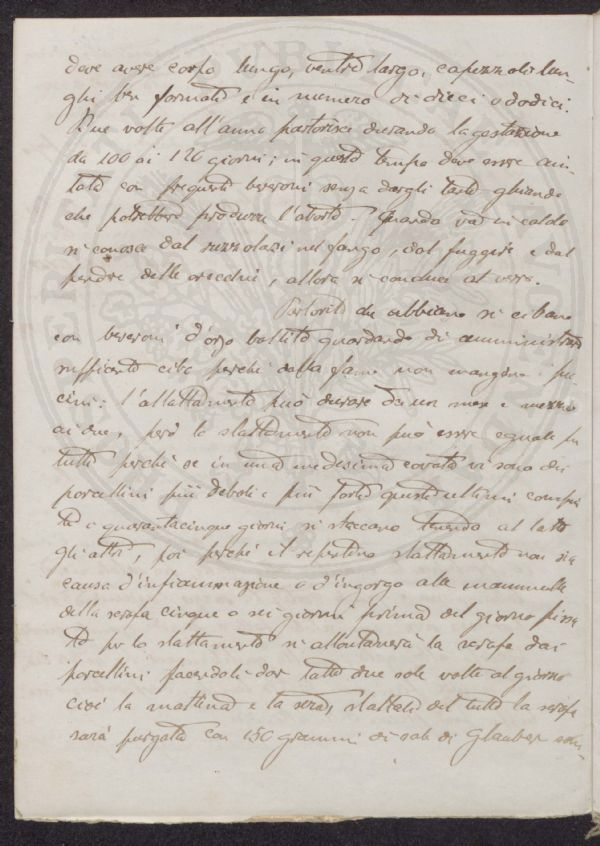 deve avere corpo lungo, ventre largo, capezzoli lun-
ghi ben formati e in numero di dieci o dodici.
Due volte all'anno partorisce durando la gestazione
da 100 ai 120 giorni; in questo tempo deve essere aiu-
tata con frequenti beveroni senza dargli tante ghiande
che potrebbero produrre l'aborto. Quando va in caldo
si conosce dal ruzzolarsi nel fango, dal fuggire e dal
pendere delle orecchie, allora si conduce al verro.
Partorito che abbiano si cibano
con beveroni d'orzo bollito guardando di amministrare
sufficiente cibo perché dalla fame non mangino i pic-
cini: l'allattamento può durare da un mese e mezzo
ai due, però lo slattamento non può essere eguale per
tutti perché se in una medesima covata vi sono dei
porcellini più deboli e più forti questi ultimi compiu-
ti i quarantacinque giorni si staccano tenendo al latte
gli altri, poi perché il repentino slattamento non sia
causa d'infiammazione o d'ingorgo alle mammelle
della scrofa cinque o sei giorni prima del giorno fissa-
to per lo slattamento si allontanerà la scrofa dai
porcellini facendoli dar latte due sole volte al giorno
cioè la mattina e la sera, slattati del tutto la scrofa
sarà purgata con 150 grammi di sale di Glauber